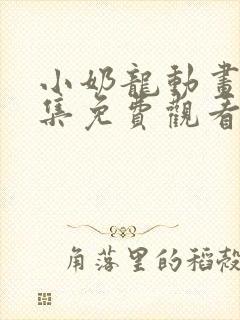 小奶龍動畫
集免費觀看
角落里的稻殼